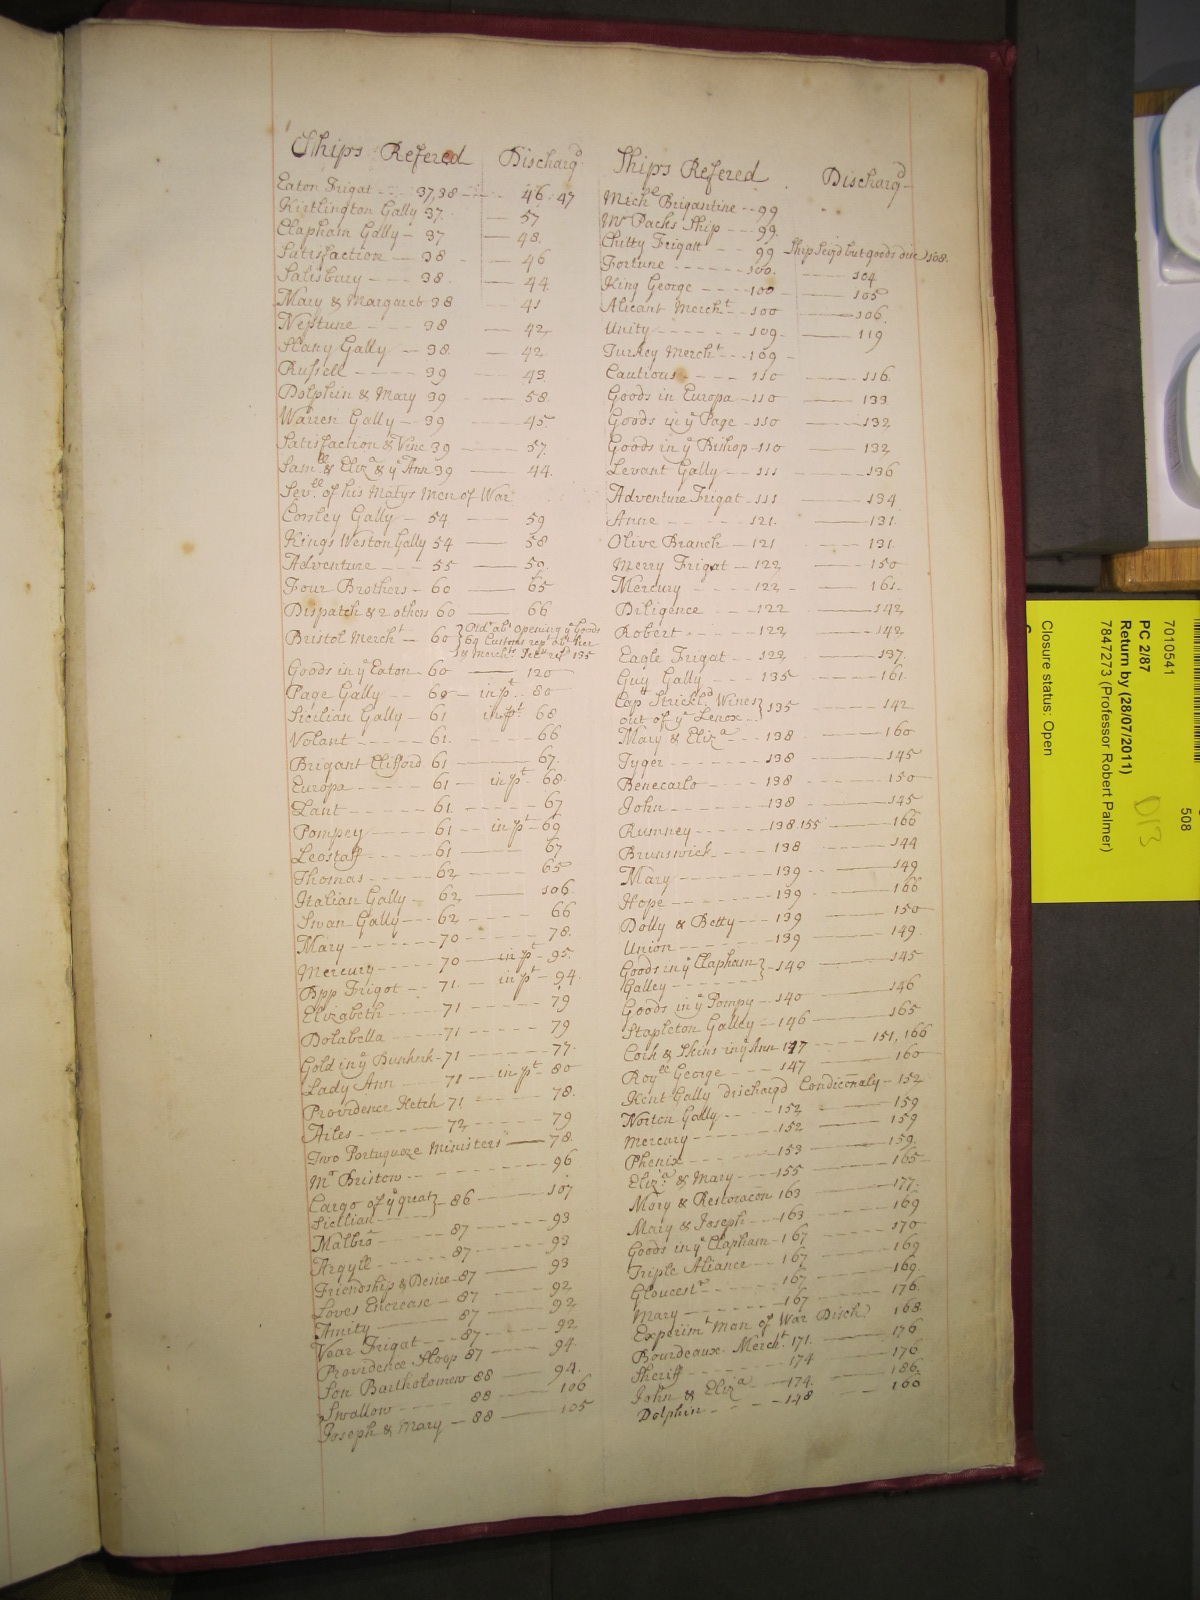 Ships Refered Dischargd
Eaton Frigat 37,38 46. 47
Kirtlington Gally 37 57
Clapham Gally 37 48
Satisfaction 38 46
Salisbury 38 44
Mary & Margaret 38 41
Neptune 38 42
Slany Gally 38 42
Russell 39 43
Dolphin & Mary 39 58
Warren Gally 39 45
Satisfaction & Vine 39 57
Samll & Eliza & ye Ann 39 44
Sevll of his Matys Men of War
Corsley Gally 54 59
Kings Weston Gally 54 58
Adventure 55 59
Four Brothers 60 65
Dispatch & 2 others 60 66
Bristol Mercht 60
Goods in ye Eaton 60 120
Page Gally 60 in pt 80
Sicilian Gally 61 in pt 68
Volant 61 66
Brigant Clifford 61 67
Europa 61 in pt 68
Lant 61 67
Pompey 61 in pt 69
Leostaff 61 67
Thomas 62 65
Italian Gally 62 106
Swan Gally 62 66
Mary 70 78
Mercury 70 in pt 95
App Frigot 71 in pt 94
Elizabeth 71 79
Dolabella 71 79
Gold in ye Dunkirk 71 77
Lady Ann 71 in pt 80
Providence Ketch 71 78
Ailes 72 79
Two Portugueze Ministers 78
Mr Bristow 96
Cargo of ye great Sicilian 86 107
Malbro 87 93
Argyll 87 93
Friendship & Desire 87 93
Loves Encrease 87 92
Amity 87 92
Vear Frigat 87 92
Providence Sloop 87 94
Son Bartholomew 88 94
Swallow 88 106
Joseph & Mary 88 105
Ships Refered Dischargd
Michl Brigantine 99
Mr Packs Ship 99
Chitty Frigatt 99 Ship but goods 108
Fortune 100 104
King George 100 105
Alicant Mercht 100 106
Unity 109 119
Turkey Mercht 109
Cautious 110 116
Goods in Europa 110 133
Goods in ye Page 110 132
Goods in ye Bishop 110 132
Levant Gally 111 136
Adventure Frigat 111 134
Anne 121 131
Olive Branch 121 131
Merry Frigat 122 150
Mercury 122 161
Diligence 122 142
Robert 122 142
Eagle Frigat 122 137
Guy Gally 135 161
Capt Strickld Wines
out of ye Lenox 135 142
Mary & Eliza 138 160
Tyger 138 145
Benecarlo 138 150
John 138 145
Rumney 138.155 166
Brunswick 138 144
Mary 139 149
Hope 139 166
Dolly & Betty 139 150
Union 139 149
Goods in ye Clapham
Galley 140 145
Goods in ye Pompy 140 146
Stapleton Galley 146 165
Cork & Skins in ye Ann 147 151, 166
Royll George 147 160
Kent Gally dischargd Condiconaly 152
Norton Gally 152 159
Mercury 152 159
Phenix 153 159
Eliza & Mary 155 165
Mary & Restoracon 163 177
Mary & Joseph 163 169
Goods in ye Clapham 167 170
Triple Aliance 167 169
Gloucestr 167 169
Mary 167 176
Experimt Man of War Dischd 168
Bourdeaux Mercht 171 176
Sheriff 174 176
John & Eliza 174 186
Dolphin 148 160
7010541 508
PC 2/87
Return by (28/07/2011)
7847273 (Professor Robert Palmer)
D13
Closure status: Open